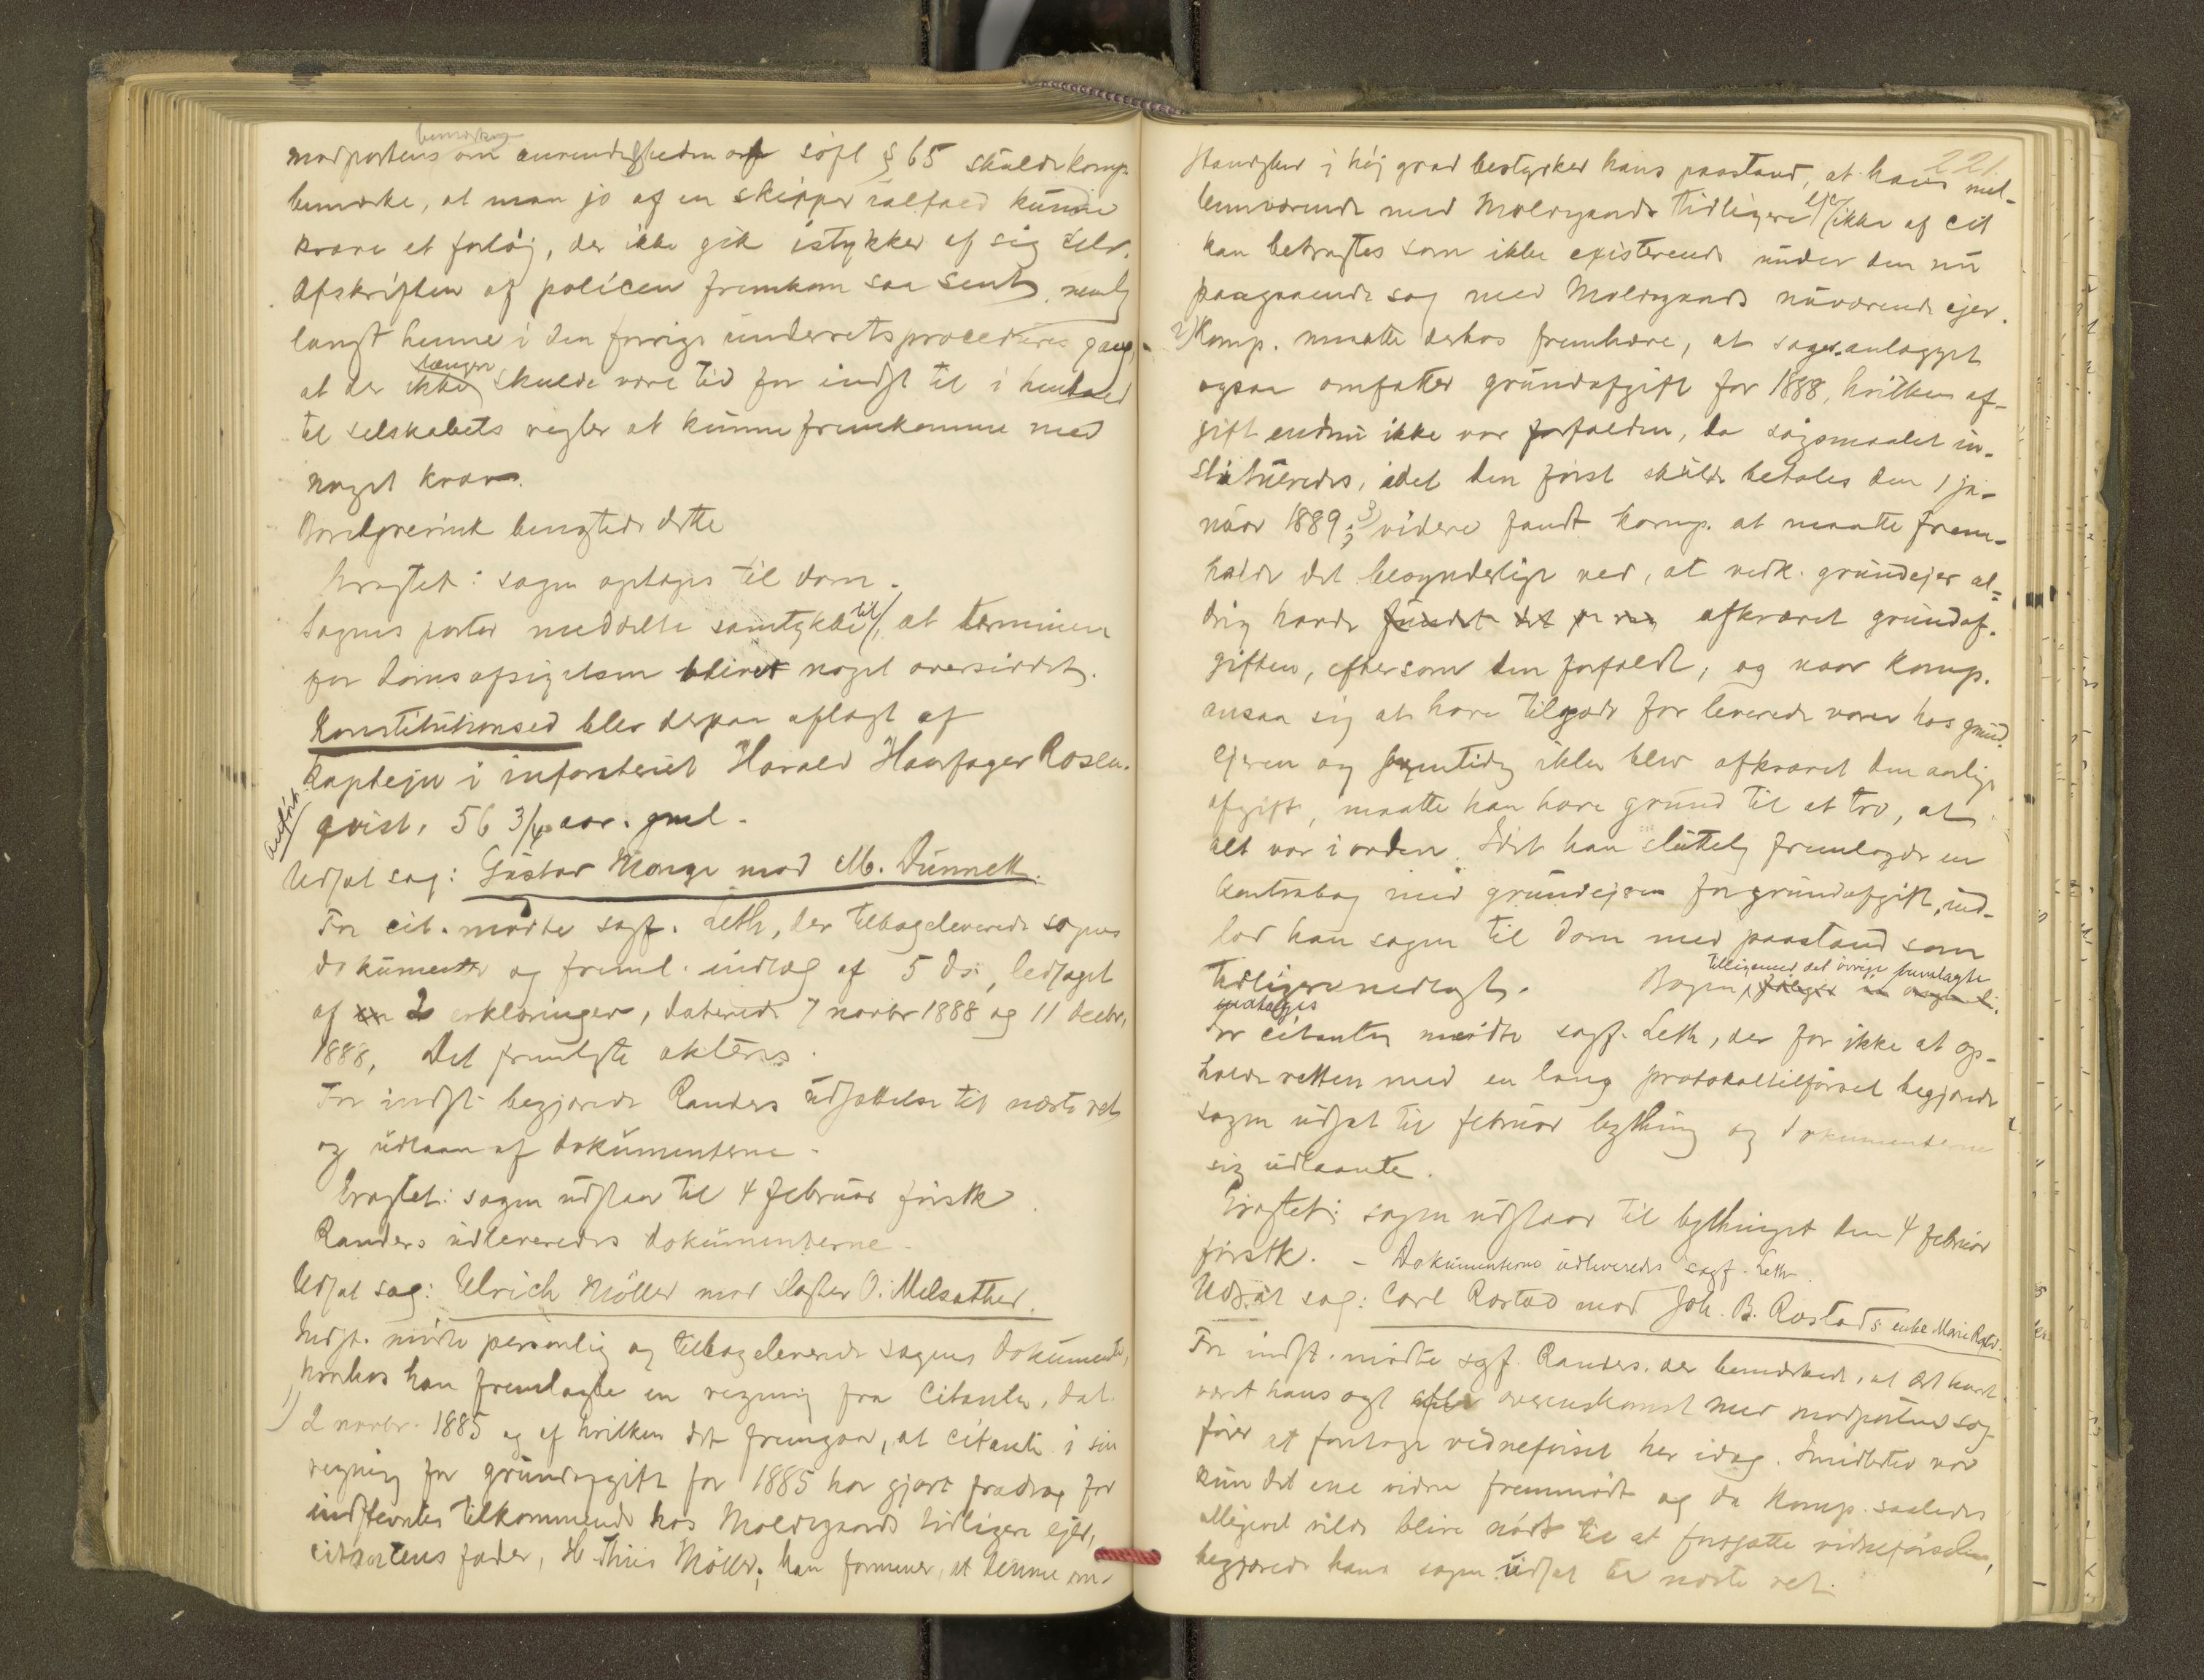 bemærkn
modpartens om anvendeligheden af söfl § 65 skulde komp.
bemærke, at man jo af en skipper ialfald kunne
kræve et forlög, der ikke gik istykker af sig selv.
Afskriften af policen fremkom saa sent, nemlig
langt henne i den forrige underretsprocedures gang,
at der ikke længere skulde være tid for indst til i henhold
til selskabets regler at kunne fremkomme med
noget krav.
benegtede dette
Eragtet: sagen optages til dom.
Sagens parter meddelte samtykke til, at terminen
for domsafsigelsen bliver noget oversiddet.
Konstitutionsed blev derpaa aflagt af
kaptejn i infanteriet Harald Haarfager Rosen-
qvist, 56 3/4 aar gml.
anfört.
Udsat sag: Gustav Monge mod M. Dunnett.
For cit. mödte sagf. Leth, der tilbageleverede sagens
dokumenter og freml. indlæg af 5 ds., ledsaget
af 2 erklæringer, daterede 7 novbr 1888 og 11 decbr.
1888. Det fremlagte akteres.
For indst. begjærede Randers udsættelse til næste ret
og udlaan af dokumenterne.
Eragtet: sagen udstaar til 4 februar förstk.
Randers udleveredes dokumenterne.
Udsat sag: Ulrich Möller mod slagter O. Melsæther.
Indst. mödte personlig og tilbageleverede sagens dokumenter,
hvorhos han fremlagte en regning fra citanten, dat.
1) 2 novbr. 1885 og af hvilken det fremgaar, at citanten i sin
regning for grundafgift for 1885 har gjort fradrag for
indstevntes tilkommende hos Moldegaards tidligere ejer,
citantens fader, H. Thiis Möller; han formener, at denne om-
221.
stændighed i höj grad bestyrker hans paastand, at hans mel-
lemværende med Moldegaards tidligere ejer ikke af cit
kan betragtes som ikke existerende under den nu
paagaaende sag med Moldegaards nuværende ejer.
2) Komp. maatte derhos fremhæve, at sagsanlægget
ogsaa omfatter grundafgift for 1888, hvilken af-
gift endnu ikke var forfalden, da sögsmaalet in-
stitueredes, idet den först skulde betales den 1 ja-
nuar 1889; 3) videre fandt komp. at maatte frem-
holde det besynderlige ved, at vedk. grundejer al-
drig havde fundet det afkrævet grundaf-
giften, eftersom den forfaldt, og naar komp.
ansaa sig at have tilgode for leverede varer hos grund-
ejeren og samtidig ikke blev afkrævet den aarlige
afgift, maatte han have grund til at tro, at
alt var i orden. Idet han sluttelig fremlagde en
kontrabog med grundejeren for grundafgift, ind-
lod han sagen til dom med paastand som
tidligere nedlagt. Bogen tilligemed det övrige fremlagte
indtages
For citanten mödte sagf. Leth, der for ikke at op-
holde retten med en lang protokoltilförsel begjærede
sagen udsat til februar bything og dokumenterne
sig udlaante.
Eragtet: sagen udstaar til bythinget den 4 februar
förstk. – Dokumenterne udleveredes sagf. Leth.
Udsat sag: Carl Rostad mod Joh. B. Rostads enke Marie Rostad.
For indst. mödte sgf. Randers, der bemærkede, at det havde
været hans agt efter overenskomst med modpartens sag-
förer at foretage vidneförsel her idag. Imidlertid var
kun det ene vidne fremmödt og da komp. saaledes
alligevel vilde blive nödt til at fortsætte vidneförselen,
begjærede hans sagen udsat til næste ret.